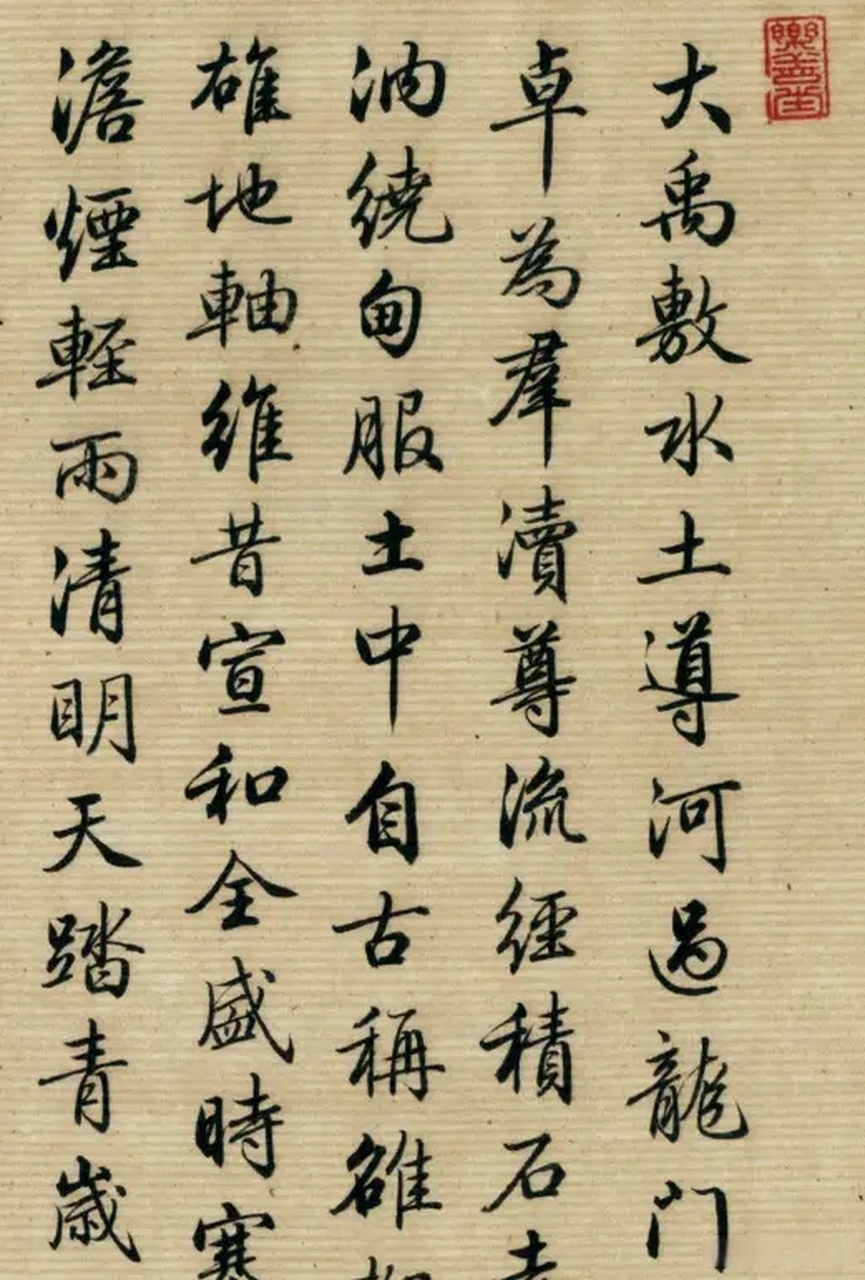 樂善堂
大禹敷水土導河過龍門
卓為羣瀆尊流經積石
汭繞甸服土中自古稱雒
雄地軸維昔宣和全盛時寒
澹煙輕雨清明天踏青歲